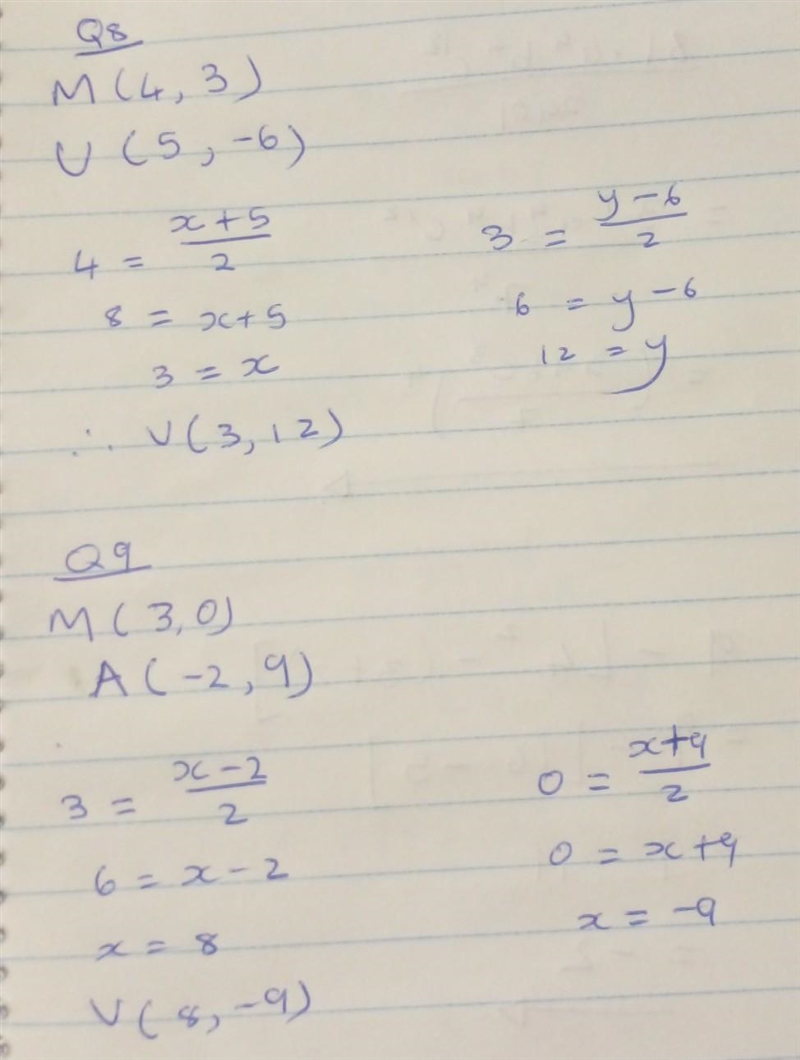 Q8
M(4,3)
U(5,-6)
4 = x+5/2
8 = x+5
3 = x
3 = y-6/2
6 = y-6
12 = y
∴ V(3,12)
Q9
M(3,0)
A(-2,9)
3 = x-2/2
6 = x-2
x = 8
0 = x+9/2
0 = x+9
x = -9
V(8,-9)